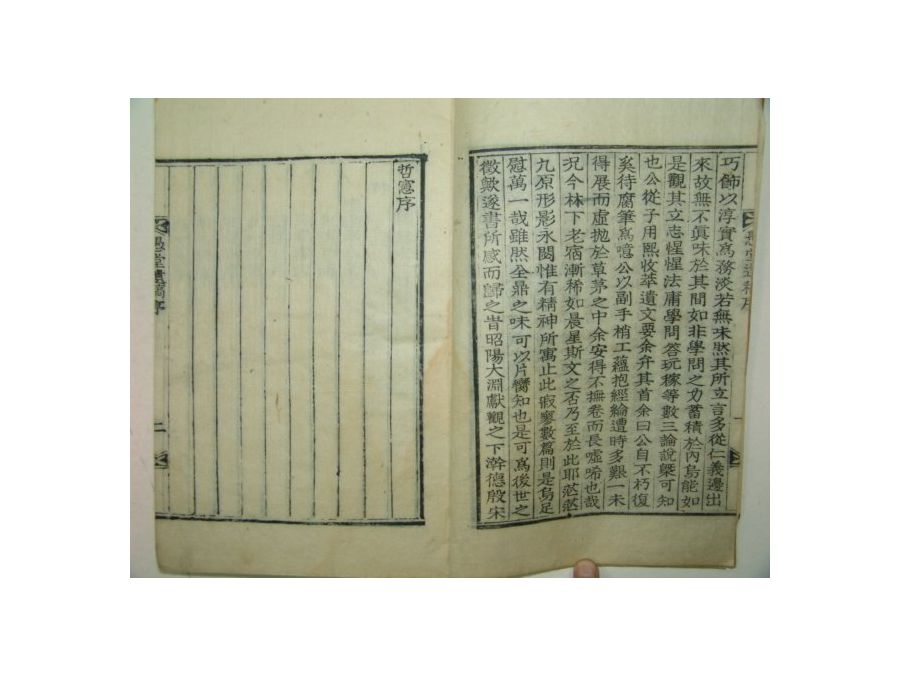 巧飾以淳實爲務淡若無味然其所立言多從仁義邊出
來故無不眞味於其間如非學問之力蓄積於內烏能如
是觀其立志惺惺法庸學問答玩稼等數三論說槩可知
也公從子用熙收萃遺文要余弁其首余曰公自不朽復
奚待腐筆爲噫公以副手梢工蘊抱經綸遭時多艱一未
得展而虛拋於草茅之中余安得不撫卷而長噓唏也哉
況今林下老宿漸稀如晨星斯文之否乃至於此耶茫茫
九原形影永閟惟有精神所寓止此寂寥數篇則是烏足
慰萬一哉雖然全鼎之味可以片臠知也是可爲後世之
徵歟遂書所感而歸之旹昭陽大淵獻觀之下澣德殷宋
哲憲序
愚堂遺稿序
二